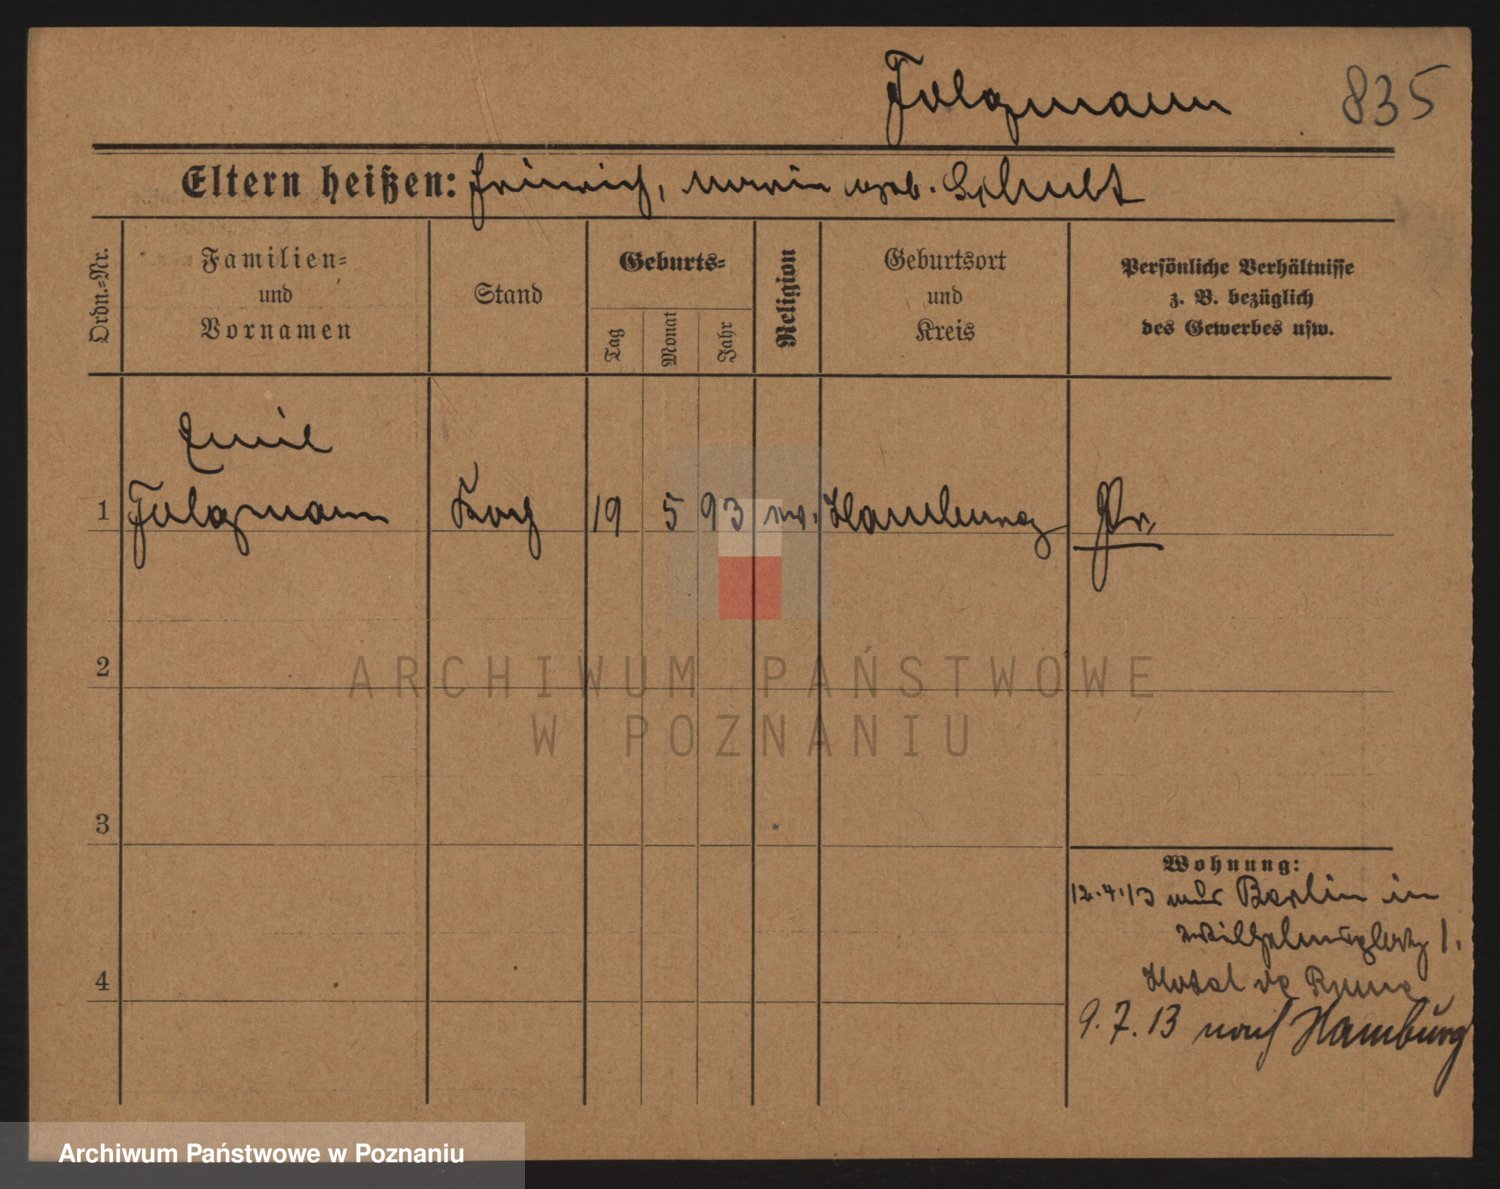 Folgmann 835
Eltern heißen: Heinrich, Marie geb. Schubt
Ordn.-Nr.
Familien-
und
Vornamen
Stand
Geburts-
Tag
Monat
Jahr
Religion
Geburtsort
und
Kreis
Persönliche Verhältnisse
z. B. bezüglich
des Gewerbes usw.
Emil
1 Folgmann Koch 19 5 93 ev. Hamburg Pr.
2
3
4
Wohnung:
12.4.13 aus Berlin in
Wilhelmsplatz 1.
Hotel de Rome
9.7.13 nach Hamburg
ARCHIWUM PAŃSTWOWE
W POZNANIU
Archiwum Państwowe w Poznaniu